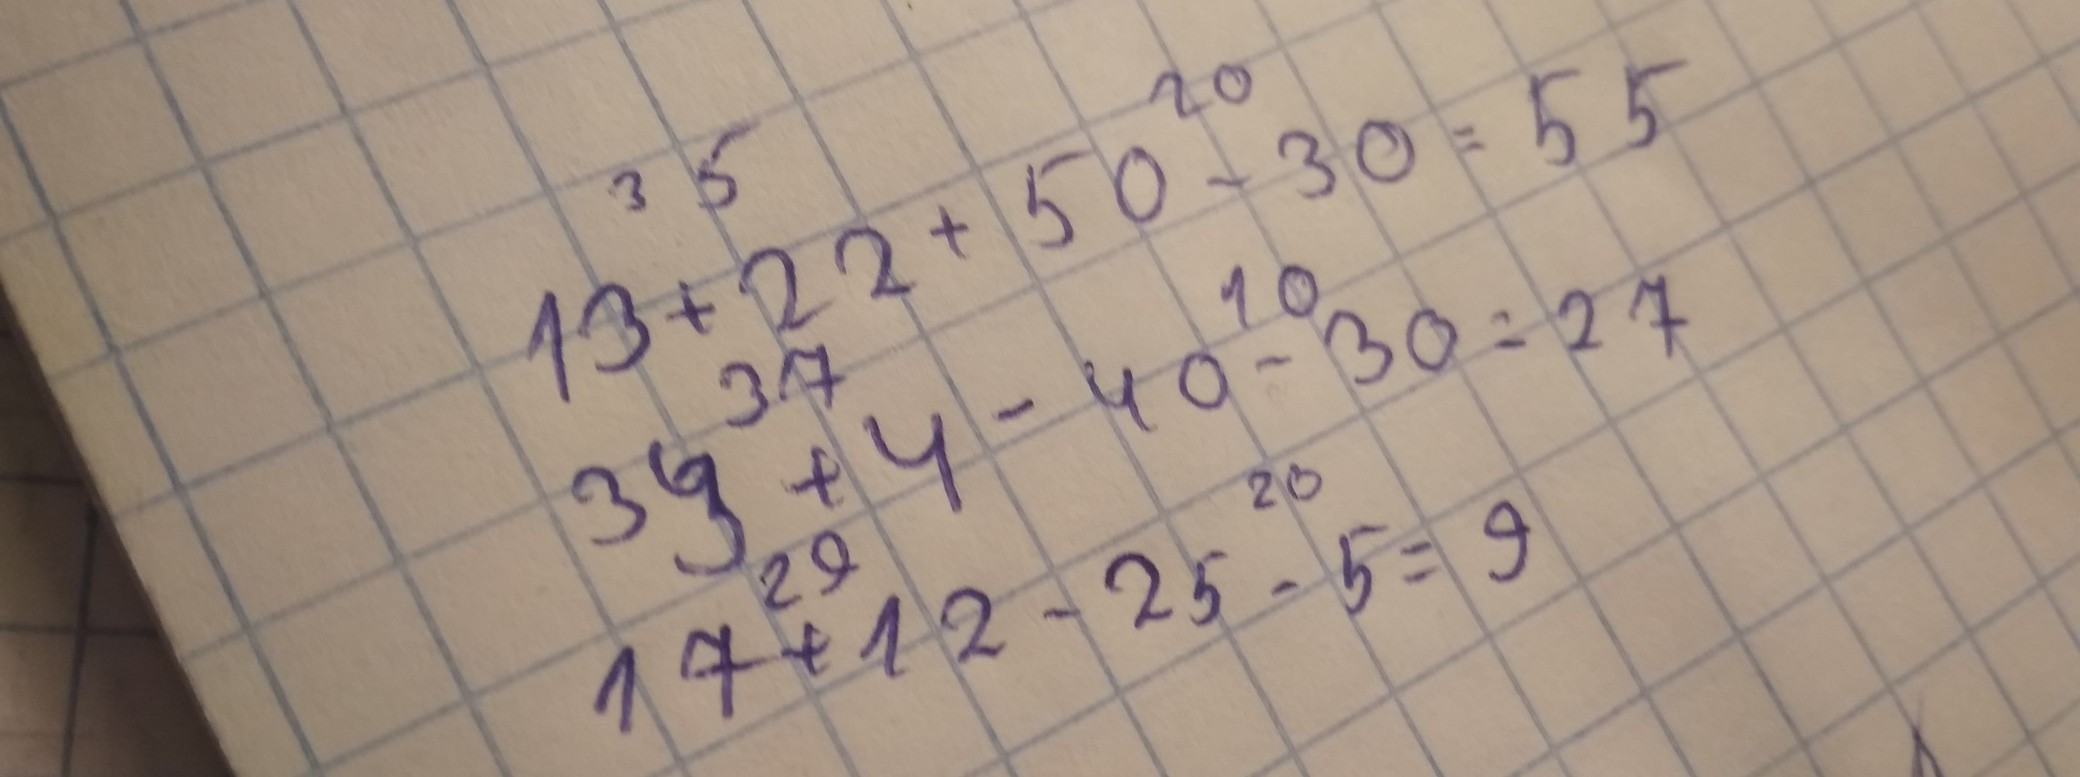 35 20
13+22+50-30=55
37 10
39+4-40-30=27
29 20
17+12-25-5=9